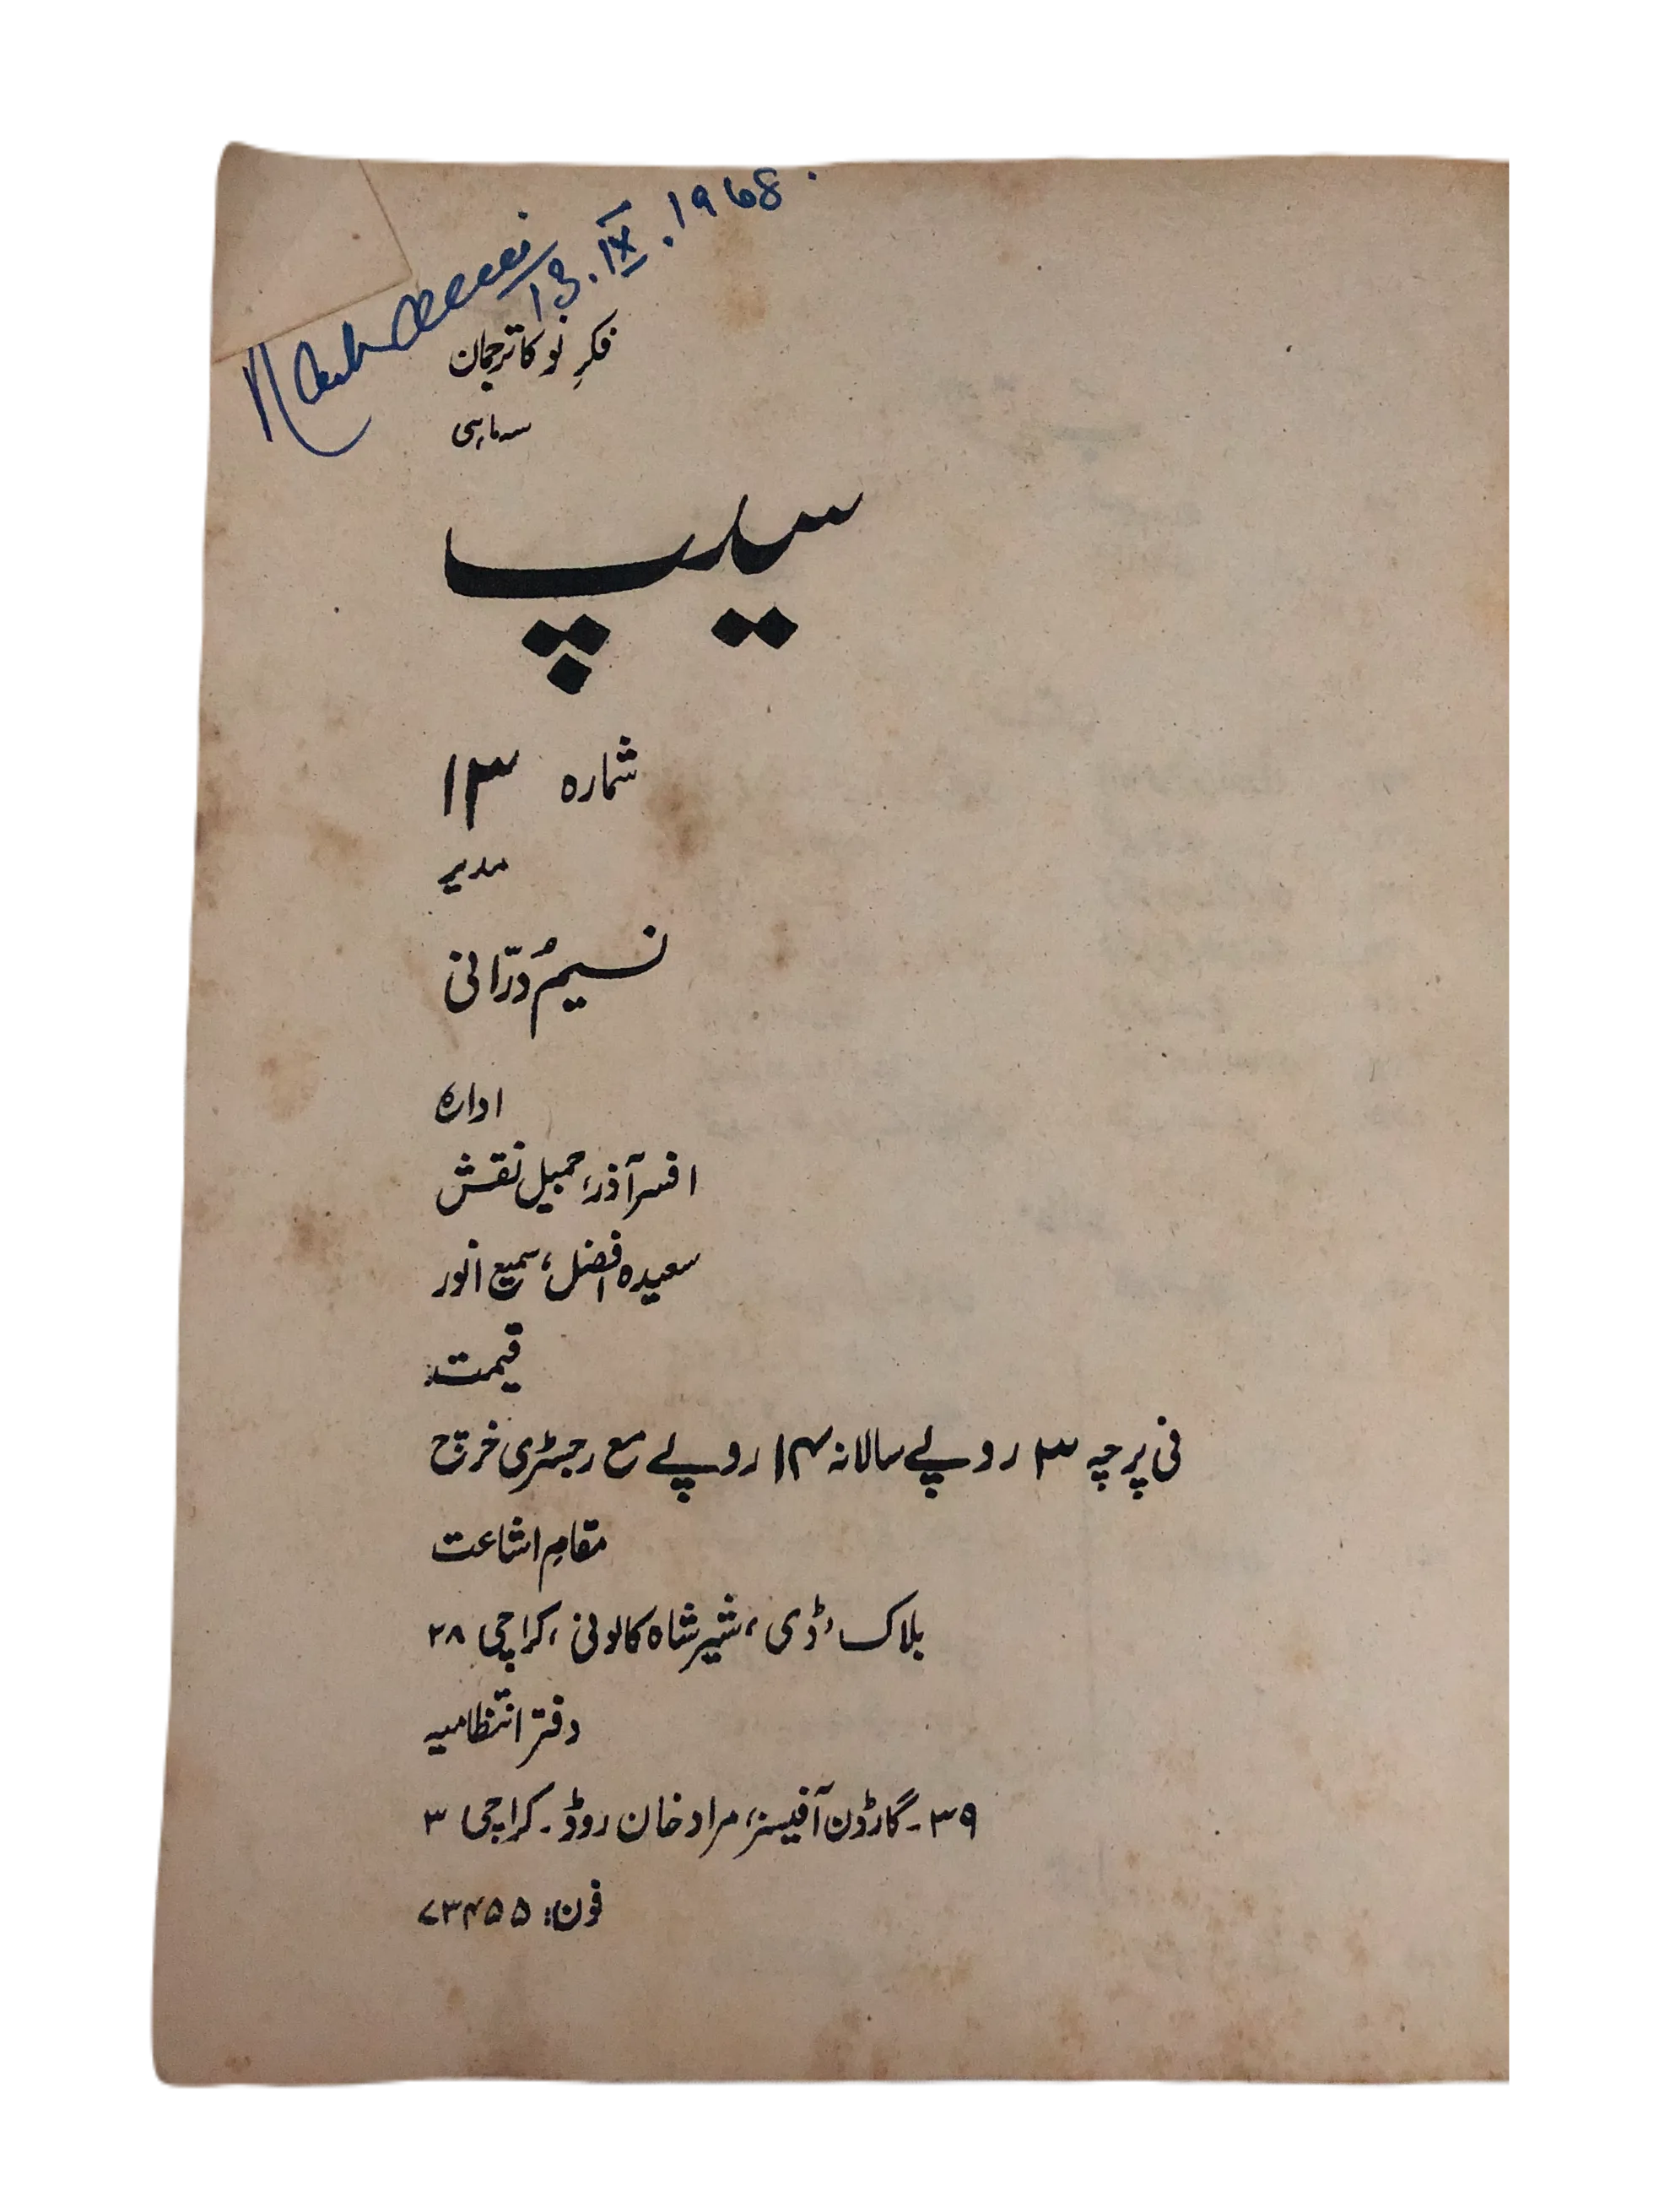 13.IX.1968.
فکرِ نو کا ترجمان
سہ ماہی
سیپ
شمارہ ۱۳
مدیر
نسیم دُرّانی
ادارہ
افسر آذر، جمیل نقش
سعیدہ افضل، سمیع انور
قیمت
فی پرچہ ۳ روپے سالانہ ۱۴ روپے مع رجسٹری خرچ
مقامِ اشاعت
بلاک ’ڈی‘ شیر شاہ کالونی، کراچی ۲۸
دفتر انتظامیہ
۳۹۔ گارڈن آفیسز، مراد خان روڈ۔ کراچی ۳
فون: ۷۳۴۵۵